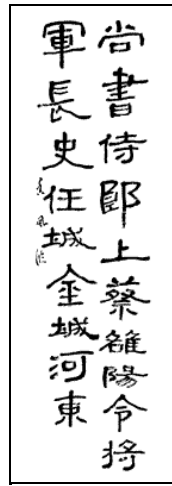 尚書侍郎上蔡雒陽令將
軍長史任城金城河東